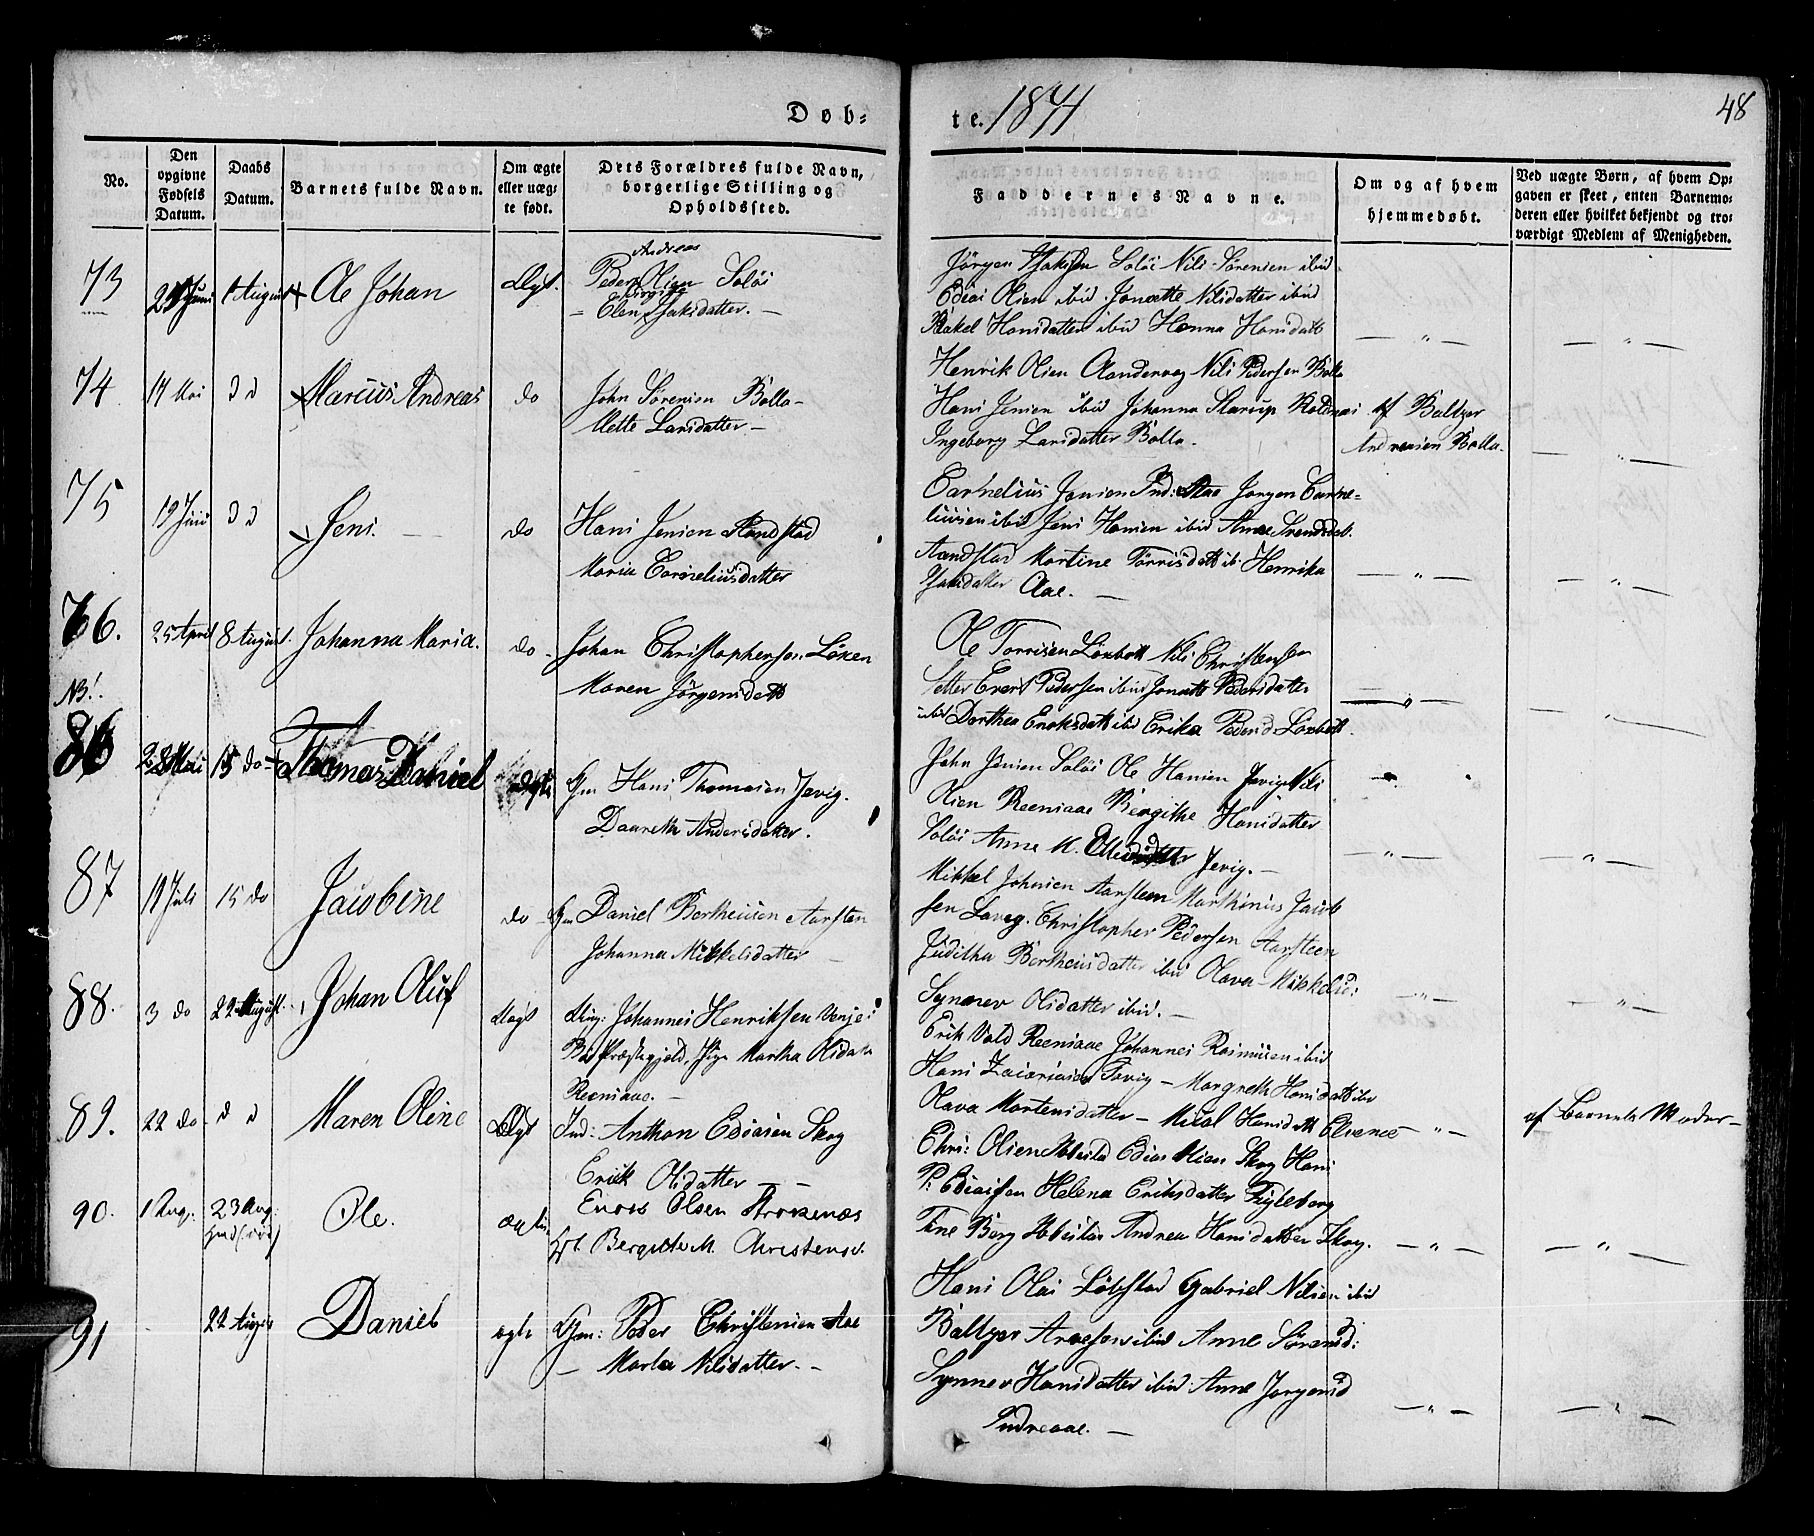 Døb-
te. 1841
48
No.
Den opgivne Fødsels Datum.
Daabs Datum.
Barnets fulde Navn.
Om ægte eller uægte født.
Dets Forældres fulde Navn, borgerlige Stilling og Opholdssted.
Faddernes Navne.
Om og af hvem hjemmedøbt.
Ved uægte Børn, af hvem Opgaven er skeet, enten Barnemoderen eller hvilket bekjendt og troværdigt Medlem af Menigheden.
73
Juni
1 August
Ole Johan
Ægt.
Andreas
Peder Olsen Soløi
Birgitte
- Elen Isaksdatter. -
Jørgen Isaksen Soløi Nils Sørensen ibid
Edias Olsen ibid Jonette Nilsdatter ibid
Rakel Hansdatter ibid Hanna Hansdatt
74
17 Mai
d d
Marcus Andreas
do
John Sørensen Bolla -
Mette Larsdatter -
Henrik Olsen Aandervag Nils Pedersen Bolla
Hans Jensen ibid Johanna Starup Roldnæs
Ingeborg Larsdatter Bolla.
af Baltzer
Andreasen Bolla.
75
19 Juni
d d
Jens.
do
Hans Jensen Aandstad
Maria Corneliusdatter
Cornelius Jonsen Ind: Aae Jørgen Corne-
liussen ibid Jens Hansen ibid Anne Svendsdat.
Aandstad Martine Torrisdatt ib. Henrika
Isaksdatter Aae. -
76.
25 April
8 August.
Johanna Maria.
do -
Johan Christophersen Løxen
Maren Jørgensdatt
Ole Torrisen Løxbott Nils Christensen
Setter Evert Pedersen ibid Jonette Pedersdatter
ibid Dorthea Enoksdatt ibid Erika Pedersd Løxbott.
NB!.
86
28 Mai
15 do
Thomas Daniel
ægte
Gm Hans Thomasen Jevig.
Daareth Andersdatter.
John Jensen Soløi Ole Hansen Jevig Nils
Olsen Reensaae Bergithe Hansdatter
Soløi Anne M. Jevig. -
87
19 Juli
15 do
Jacobine
do
Gm Daniel Bertheussen Aarsten
Johanna Mikkelsdatter -
Mikkel Johnsen Aarsteen Marthinus Jacob
sen Laveg. Christopher Pedersen Aarsteen
Juditha Bertheusdatter ibid Olava Mikkelsd:
Synnev Olsdatter ibid. -
88.
3 do
22 August
Johan Oluf
Uægt
Ung: Johannes Henriksen Venje i
Bøe Præstegjeld, Pige Martha Olsdatt
Reensaae. -
Erik Vold Reensaae Johannes Rasmusen ibid
Hans Zacariasen Jevig - Margreth Hansdatt ibd
Olava Mortensdatter - Mikal Hansdatt Elvenes
af Barnets Moder -
89.
22 do.
d d
Maren Oline
Ægt
Ind: Anthon Ediasen Skog
Erik Olsdatter -
Chri: Olsen Melbu Edias Olsen Skog Hans
P: Ediassen Helena Eriksdatter Fugleborg
Tine Borg Andrea Hansdatter Skog.
90.
1 Aug.
23 Aug.
Ole.
ægte
Enoks Olsen Strokenæs
H. Bergitte M. Christensd.
91
22 August
Daniel
ægte
Gm: Peder Christensen Aae
- Marta Nilsdatter. -
Hans Olai Løbstad Gabriel Nilsen ibid
Baltzer Arnesen ibid Anne Sørensd:
Synnev Hansdatter ibid Anne Jorgensd
Indreaae. -